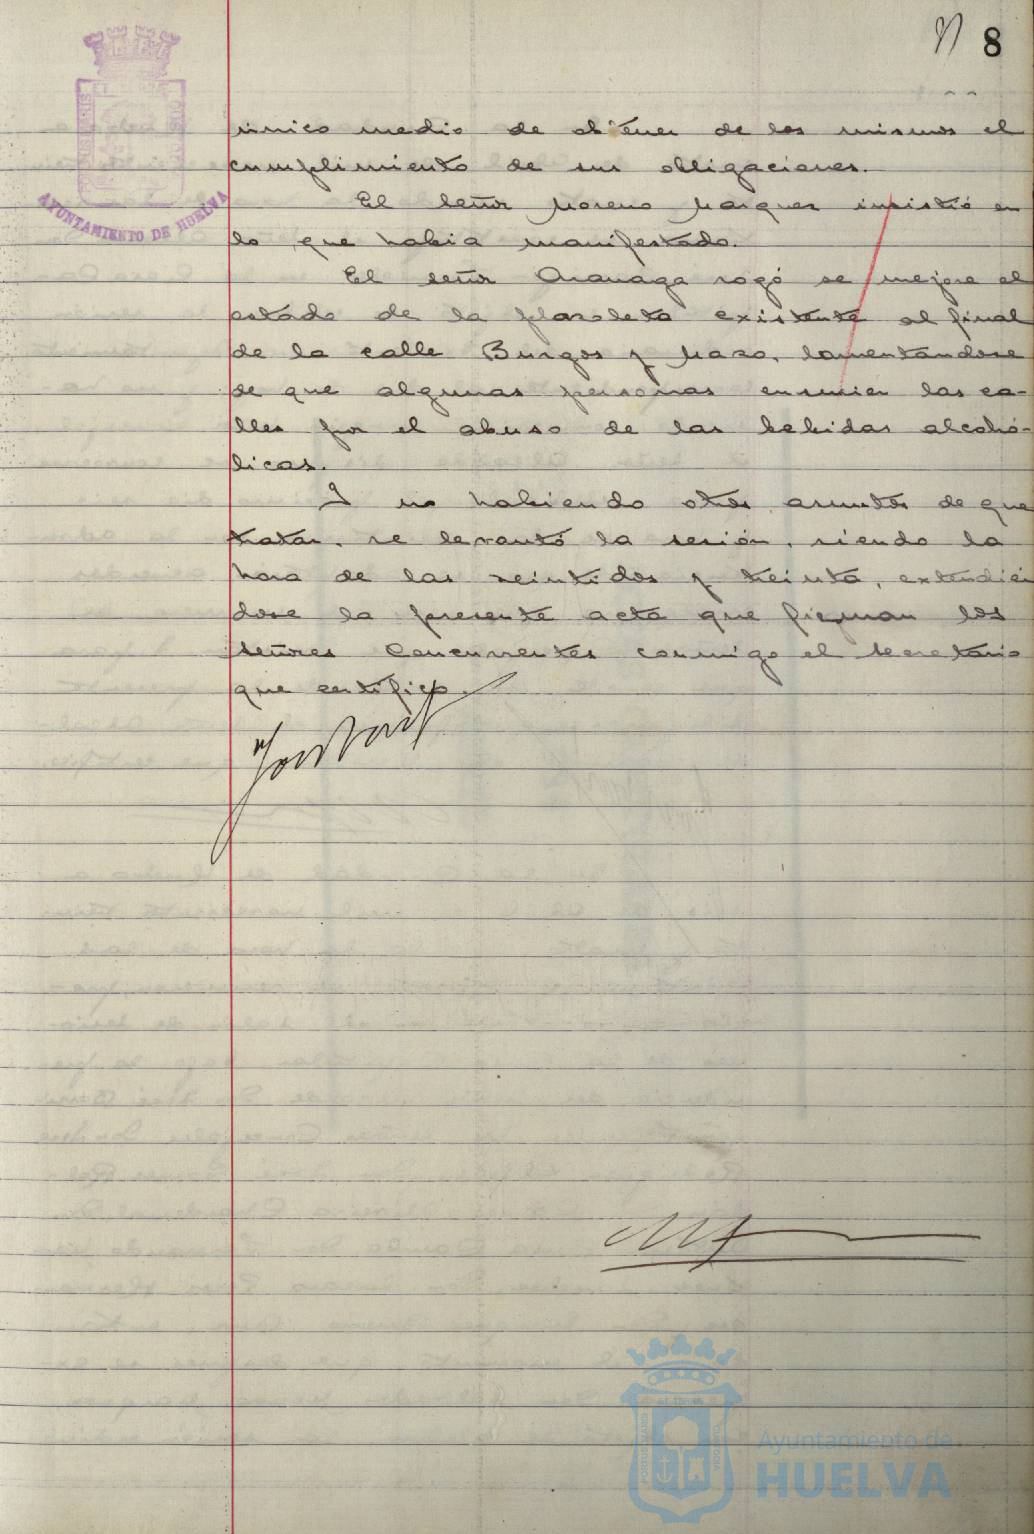 8
AYUNTAMIENTO DE HUELVA
único medio de obtener de los mismos el
cumplimiento de sus obligaciones.
El señor Moreno Marquez insistió en
lo que habia manifestado.
El señor Aranaga rogó se mejore el
estado de la plazoleta existente al final
de la calle Burgos y Mazo, lamentandose
de que algunas personas ensucien las ca-
lles por el abuso de las bebidas alcohó-
licas.
Y no habiendo otros asuntos de que
tratar, se levantó la sesión, siendo la
hora de las veintidos y treinta, extendién
dose la presente acta que firman los
señores Concurrentes conmigo el Secretario
que certifico.
Ayuntamiento de
HUELVA